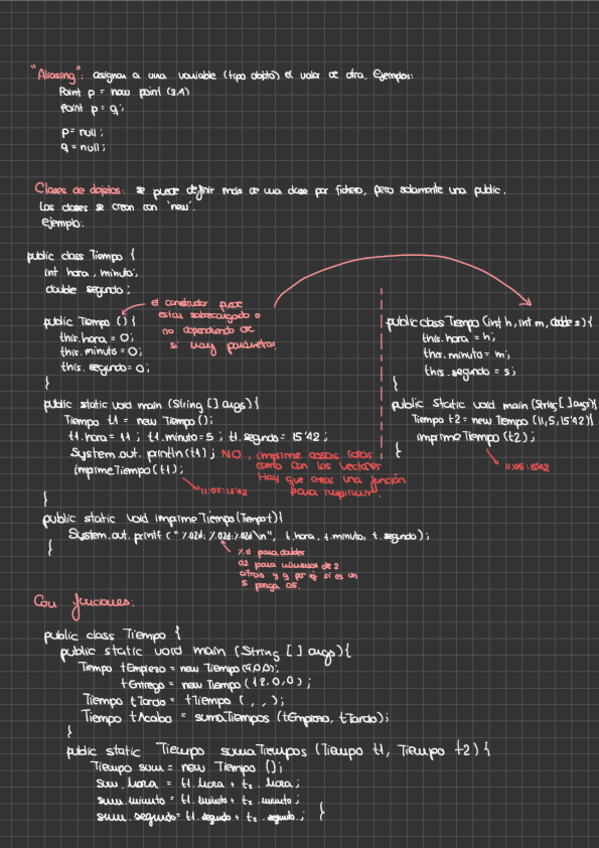 "Aliasing": asignar a una variable (tipo objeto) el valor de otra. Ejemplos:
Point p = new point (3,4)
Point p = q;
p = null;
q = null;
Clases de objetos: se puede definir más de una clase por fichero, pero solamente una public.
Las clases se crean con 'new'.
ejemplo:
public class Tiempo {
int hora, minuto;
double segundo;
public Tiempo () {
this.hora = 0;
this.minuto = 0;
this.segundo = 0;
}
el constructor puede
estar sobrecargado o
no dependiendo de
si hay parámetros
public static void main (String [] args){
Tiempo t1 = new Tiempo ();
t1.hora = 11; t1.minuto = 5; t1.segundo = 15'42;
System.out.println(t1); NO, imprime cosas raras
como con los vectores
Hay que crear una función
para imprimir.
imprimeTiempo (t1);
11:05:15'42
}
public class Tiempo (int h, int m, double s){
this.hora = h;
this.minuto = m;
this.segundo = s;
}
public static void main (String[] args){
Tiempo t2 = new Tiempo (11, 5, 15'42){
imprimeTiempo (t2);
}
11:05:15'42
public static void imprimeTiempo (Tiempo t){
System.out.printf ("%02d:%02d:%02d\n", t.hora, t.minuto, t.segundo);
}
para
02 para números de 2
cifras y
5 ponga 05.
Con funciones:
public class Tiempo {
public static void main (String [] args){
Tiempo tEmpiezo = new Tiempo
tEntrego = new Tiempo (12,0,0);
Tiempo tTardo = tTiempo ( , , );
Tiempo tAcabo = sumaTiempos (tEmpiezo, tTardo);
}
public static Tiempo sumaTiempos (Tiempo t1, Tiempo t2) {
Tiempo sum = new Tiempo ();
sum.hora = t1.hora + t2.hora;
sum.minuto = t1.minuto + t2.minuto;
sum.segundo = t1.segundo + t2.segundo; }